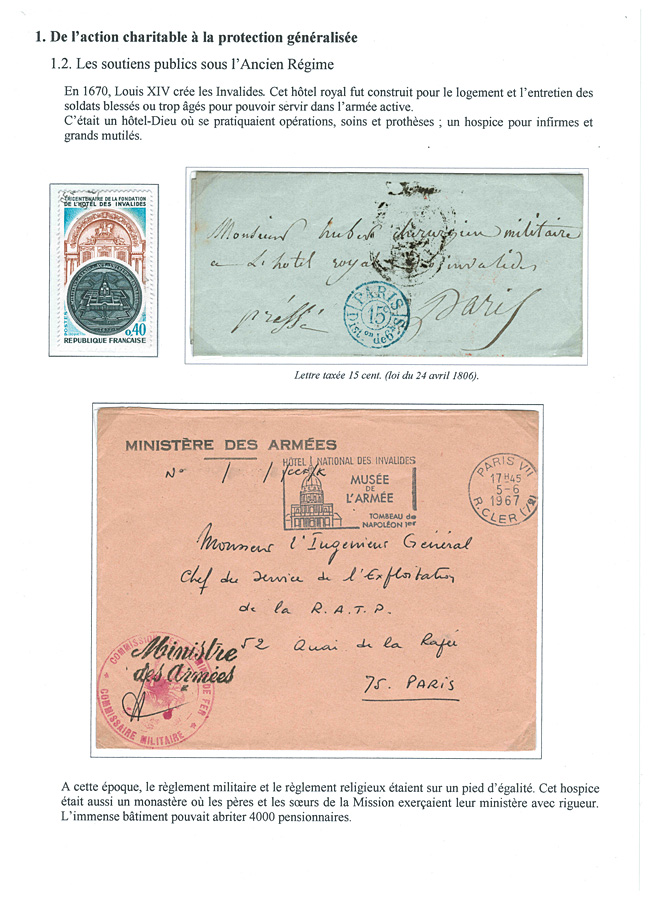 1. De l'action charitable à la protection généralisée
1.2. Les soutiens publics sous l'Ancien Régime
En 1670, Louis XIV crée les Invalides. Cet hôtel royal fut construit pour le logement et l'entretien des
soldats blessés ou trop âgés pour pouvoir servir dans l'armée active.
C'était un hôtel-Dieu où se pratiquaient opérations, soins et prothèses ; un hospice pour infirmes et
grands mutilés.
TRICENTENAIRE DE LA FONDATION
DE L'HÔTEL DES INVALIDES
POSTES
0,40
REPUBLIQUE FRANÇAISE
Monsieur hubert chirurgien militaire
a L'hôtel royal invalides
pressé
Paris
PARIS
15
Diston de 6
Lettre taxée 15 cent. (loi du 24 avril 1806).
MINISTÈRE DES ARMÉES
N° / /CCF/K
HÔTEL NATIONAL DES INVALIDES
MUSÉE
DE
L'ARMÉE
TOMBEAU de
NAPOLÉON 1er
PARIS VII
17H45
5-6
1967
R.CLER (7e)
Monsieur l'Ingenieur Général
Chef du Service de l'Exploitation
de la R.A.T.P.
52 Quai de la Rapée
75. PARIS
Ministre
des Armées
COMMISSION DE FER
COMMISSAIRE MILITAIRE
A cette époque, le règlement militaire et le règlement religieux étaient sur un pied d'égalité. Cet hospice
était aussi un monastère où les pères et les sœurs de la Mission exerçaient leur ministère avec rigueur.
L'immense bâtiment pouvait abriter 4000 pensionnaires.